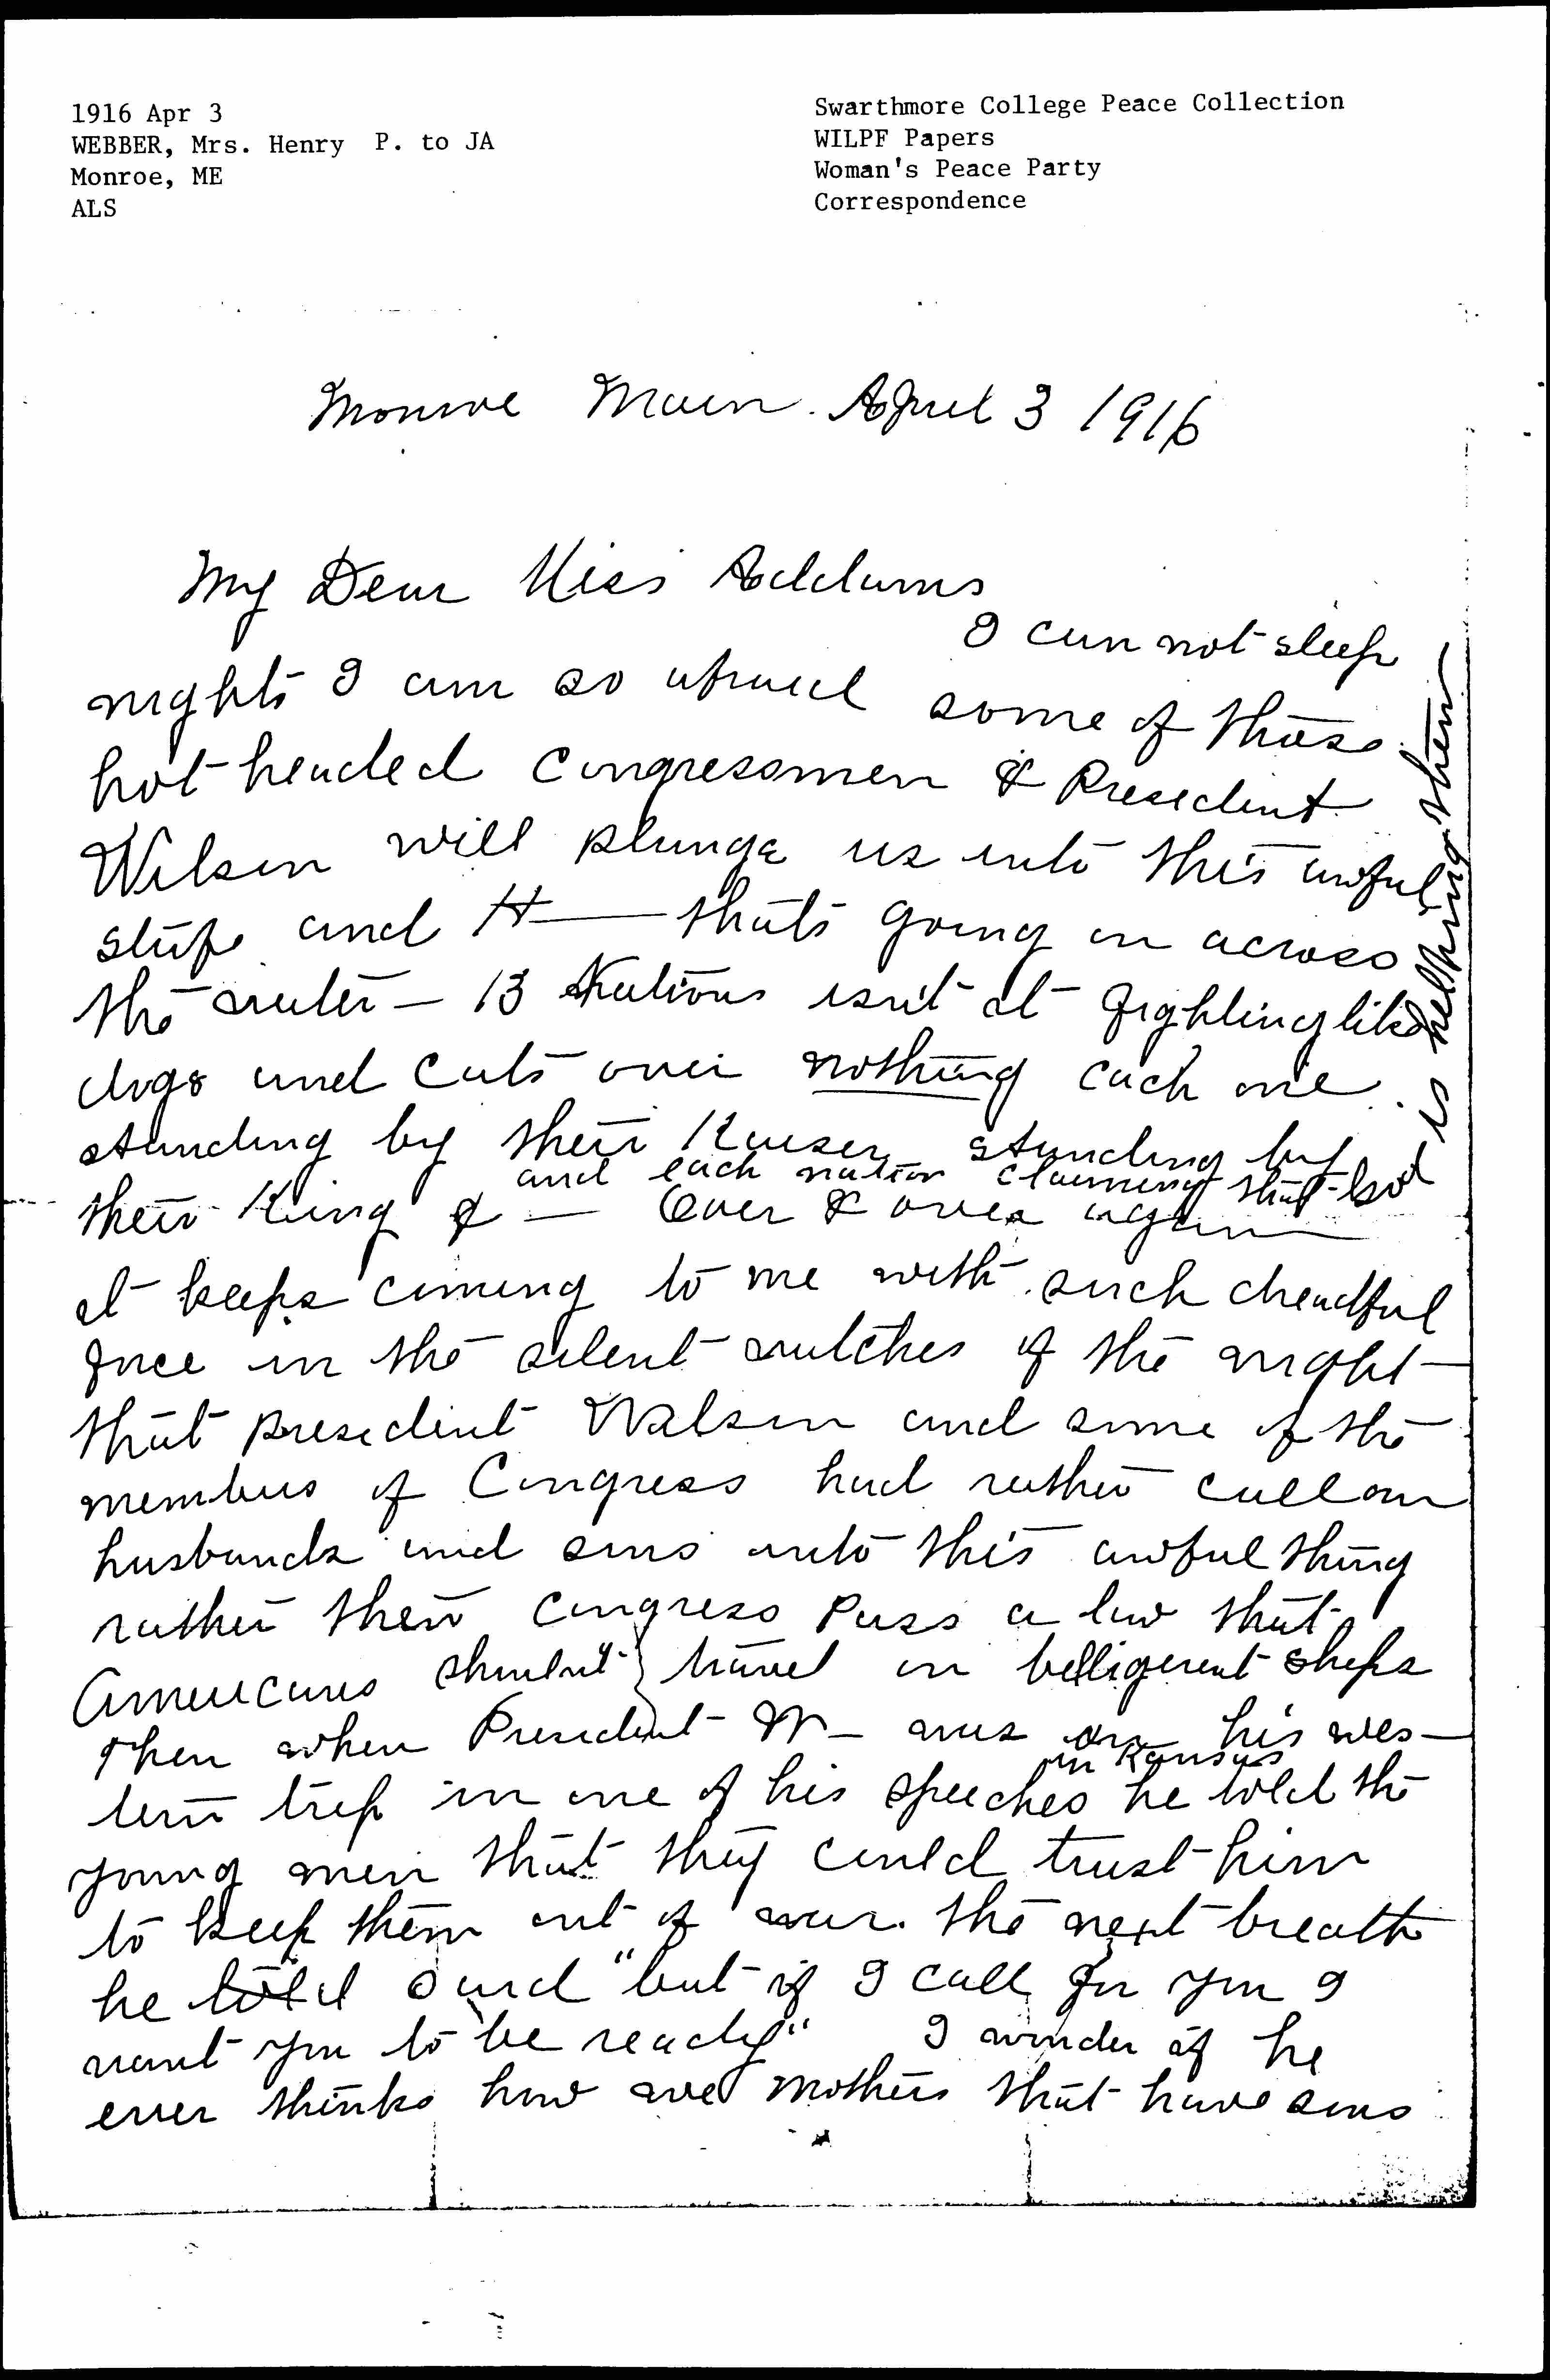 1916 Apr 3
WEBBER, Mrs. Henry P. to JA
Monroe, ME
ALS
Swarthmore College Peace Collection
WILPF Papers
Woman's Peace Party
Correspondence
Monroe Main. April 3 1916
My Dear Miss Addams
I can not sleep
nights I am so afraid some of those
hot headed Congressmen & President
Wilson will plunge us into this awful
strife and H— thats going on across
the water — 13 Nations isn't it fighting like
dogs and cats over nothing each one
standing by their Kaiser standing by
their King & — and each nation claiming that God is helping them
Over & over again
it keeps coming to me with such dreadful
force in the silent watches of the night —
that president Wilson and some of the
members of Congress had rather call our
husbands and sons into this awful thing
rather then Congress pass a law that
Americans shouldn't travel on belligerent ships
Then when President W— was on his wes-
tern trip in one of his speeches in Kansas he told the
young men that they could trust him
to keep them out of war. the next breath
he told said "but if I call for you I
want you to be ready" I wonder if he
ever thinks how we mothers that have sons